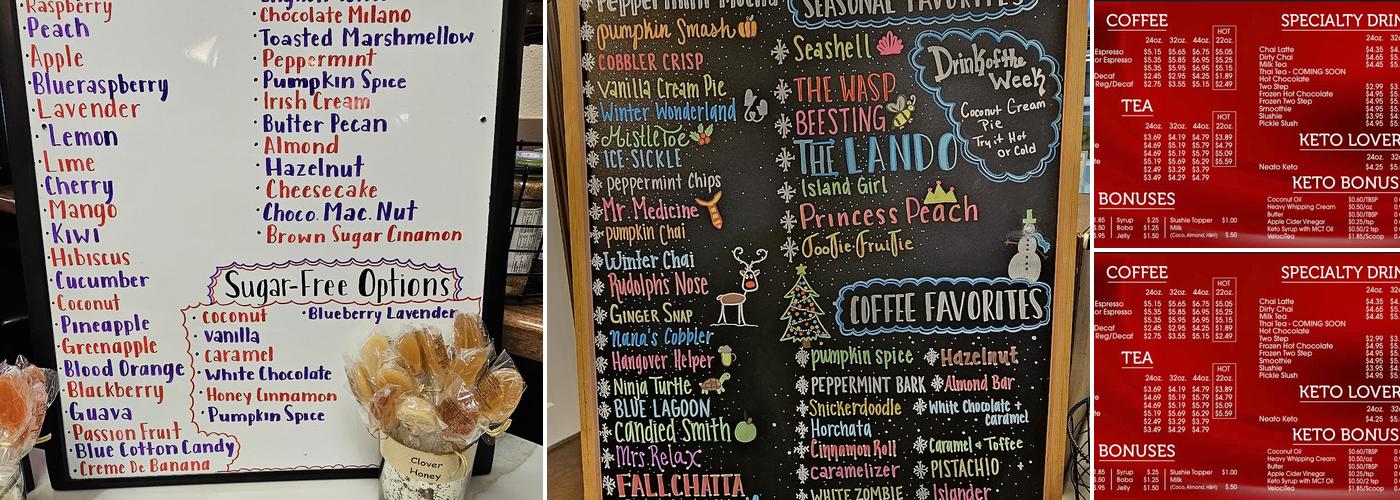 Raspberry
Peach
Apple
Blueraspberry
Lavender
Lemon
Lime
Cherry
Mango
Kiwi
Hibiscus
Cucumber
Coconut
Pineapple
Greenapple
Blood Orange
Blackberry
Guava
Passion Fruit
Blue Cotton Candy
Creme De Banana
Chocolate Milano
Toasted Marshmellow
Peppermint
Pumpkin Spice
Irish Cream
Butter Pecan
Almond
Hazelnut
Cheesecake
Choco. Mac. Nut
Brown Sugar Cinamon
Sugar-Free Options
Coconut
Vanilla
Caramel
White Chocolate
Honey Cinnamon
Pumpkin Spice
Blueberry Lavender
Clover
Honey
Peppermint Mocha
pumpkin Smash
COBBLER CRISP
Vanilla Cream Pie
Winter Wonderland
MistleToe
ICE SICKLE
peppermint Chips
Mr. Medicine
pumpkin Chai
Winter Chai
Rudolphs Nose
GINGER SNAP
Nana's Cobbler
Hangover Helper
Ninja Turtle
BLUE LAGOON
Candied Smith
Mrs Relax
FALLCHATTA
SEASONAL FAVORITES
Seashell
THE WASP
BEESTING
THE LANDO
Island Girl
Princess Peach
JooTie FruiTie
Drink of the
Week
Coconut Cream
Pie
Try it Hot
or Cold
COFFEE FAVORITES
pumpkin spice
PEPPERMINT BARK
Snickerdoodle
Horchata
Cinnamon Roll
caramelizer
WHITE ZOMBIE
Hazelnut
Almond Bar
White Chocolate +
caramel
Caramel & Toffee
PISTACHIO
Islander
COFFEE
HOT
24oz. 32oz. 44oz. 22oz.
Espresso $5.15 $5.65 $6.75 $5.05
or Espresso $5.35 $5.85 $6.95 $6.25
$5.35 $5.95 $6.95 $6.15
Decaf $2.45 $2.95 $4.25 $1.89
Reg/Decaf $2.75 $3.55 $5.15 $2.49
TEA
HOT
24oz. 32oz. 44oz. 22oz.
$3.69 $4.19 $4.79 $3.89
$4.69 $4.19 $5.79 $4.09
$4.69 $5.19 $5.79 $5.09
$5.19 $5.69 $6.29 $5.59
$2.49 $3.29 $3.79
$3.49 $4.29 $4.79
BONUSES
1.85 Syrup $.25 Slushie Topper $1.00
$.50 Boba $1.25 Milk
5.95 Jelly $1.50 (Coco, Almond, H&H) $.50
SPECIALTY DRIN
24oz. 32
Chai Latte $4.35 $4.
Dirty Chai $4.65 $5.
Milk Tea $4.45 $5.
Thai Tea - COMING SOON
Hot Chocolate
Two Step $2.99 $3.
Frozen Hot Chocolate $4.95 $5.
Frozen Two Step $4.95 $5.
Smoothie $4.95 $5.
Slushie $3.95 $4.
Pickle Slush $4.95 $5.
KETO LOVER
24oz. 32
Neato Keto $4.25 $5.
KETO BONUS
Coconut Oil $0.60/TBSP
Heavy Whipping Cream $0.50/oz
Butter $0.50/TBSP
Apple Cider Vinegar $0.25/tsp
Keto Syrup with MCT Oil $0.50/2 tsp
Velocitea $1.85/Scoop
COFFEE
HOT
24oz. 32oz. 44oz. 22oz.
Espresso $5.15 $5.65 $6.75 $5.05
or Espresso $5.35 $5.85 $6.95 $6.25
$5.35 $5.95 $6.95 $6.15
Decaf $2.45 $2.95 $4.25 $1.89
Reg/Decaf $2.75 $3.55 $5.15 $2.49
TEA
HOT
24oz. 32oz. 44oz. 22oz.
$3.69 $4.19 $4.79 $3.89
$4.69 $4.19 $5.79 $4.09
$4.69 $5.19 $5.79 $5.09
$5.19 $5.69 $6.29 $5.59
$2.49 $3.29 $3.79
$3.49 $4.29 $4.79
BONUSES
1.85 Syrup $.25 Slushie Topper $1.00
$.50 Boba $1.25 Milk
5.95 Jelly $1.50 (Coco, Almond, H&H) $.50
SPECIALTY DRIN
24oz. 32
Chai Latte $4.35 $4.
Dirty Chai $4.65 $5.
Milk Tea $4.45 $5.
Thai Tea - COMING SOON
Hot Chocolate
Two Step $2.99 $3.
Frozen Hot Chocolate $4.95 $5.
Frozen Two Step $4.95 $5.
Smoothie $4.95 $5.
Slushie $3.95 $4.
Pickle Slush $4.95 $5.
KETO LOVER
24oz. 32
Neato Keto $4.25 $5.
KETO BONUS
Coconut Oil $0.60/TBSP
Heavy Whipping Cream $0.50/oz
Butter $0.50/TBSP
Apple Cider Vinegar $0.25/tsp
Keto Syrup with MCT Oil $0.50/2 tsp
Velocitea $1.85/Scoop